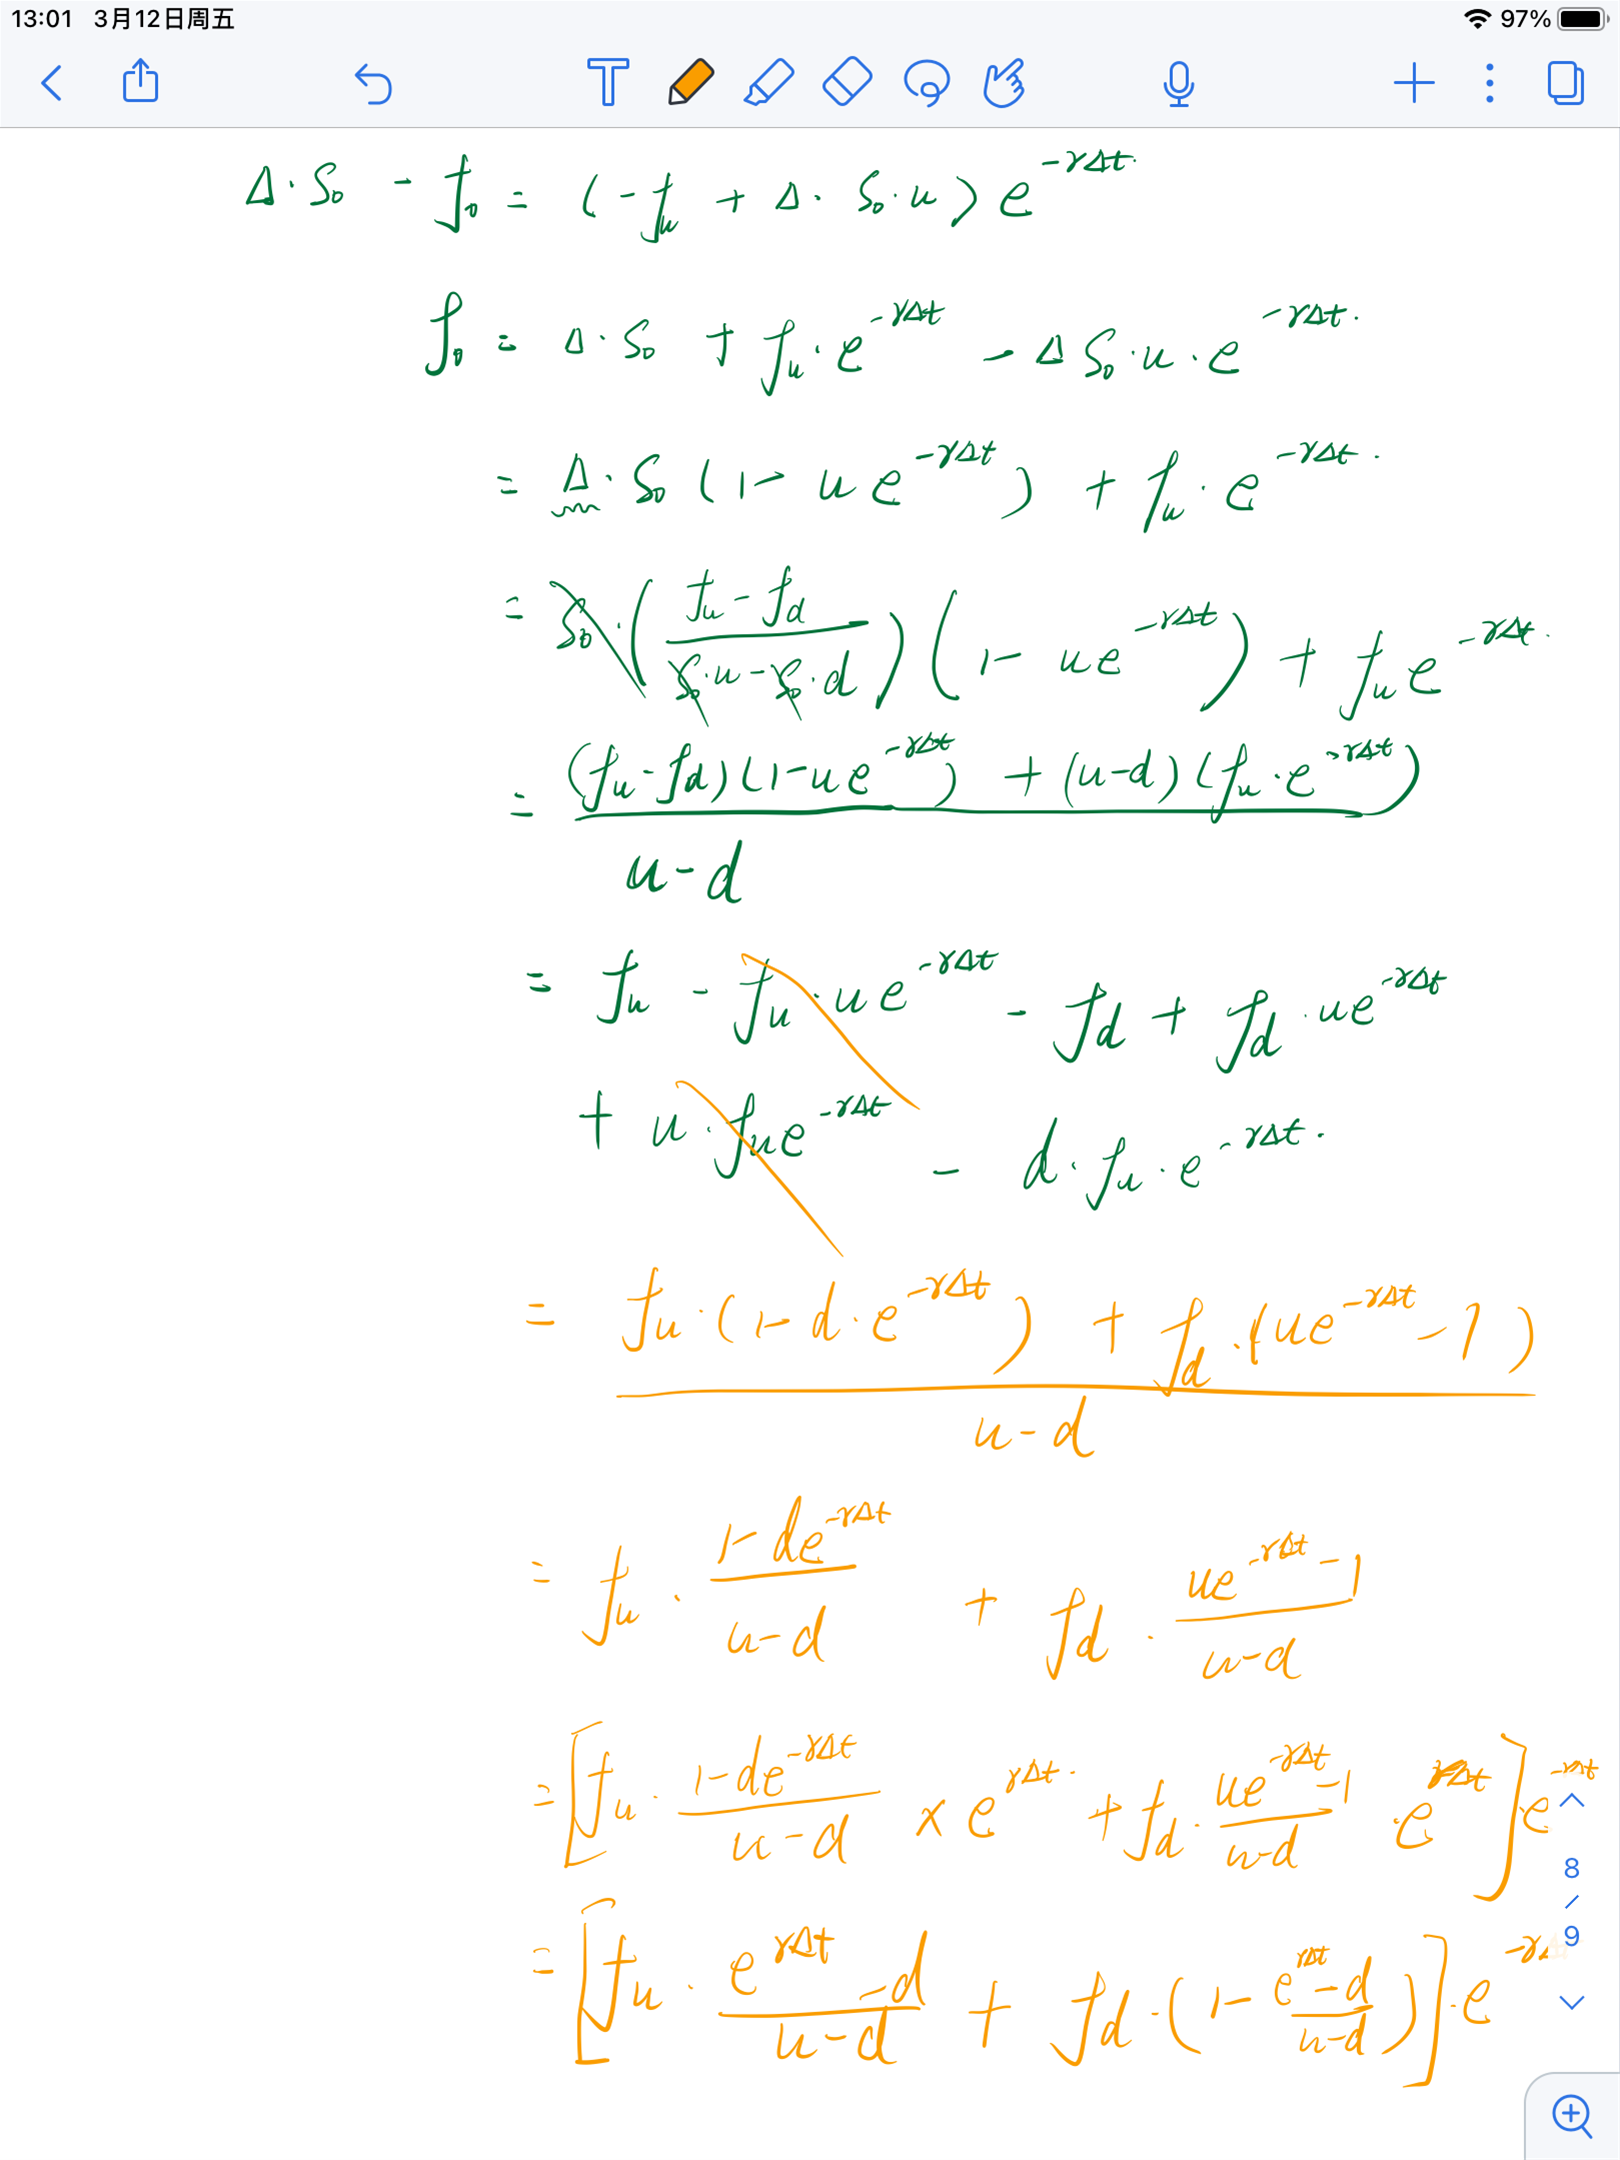 13:01 3月12日周五 97%
T
Δ·S₀ - f₀ = (-fu + Δ· S₀·u) e^{-rΔt}.
f₀ = Δ·S₀ + fu·e^{-rΔt} - Δ S₀·u·e^{-rΔt}.
= Δ·S₀ (1 - u e^{-rΔt}) + fu·e^{-rΔt}.
= S₀·((fu - fd)/(S₀·u - S₀·d)) (1 - ue^{-rΔt}) + fu e^{-rΔt}.
= ((fu - fd)(1 - ue^{-rΔt}) + (u-d)(fu·e^{-rΔt}))/(u-d)
= fu - fu·ue^{-rΔt} - fd + fd·ue^{-rΔt}
+ u·fue^{-rΔt} - d·fu·e^{-rΔt}.
= (fu·(1 - d·e^{-rΔt}) + fd·(ue^{-rΔt} - 1))/(u-d)
= fu·(1 - de^{-rΔt})/(u-d) + fd·(ue^{-rΔt} - 1)/(u-d)
= [fu·(1 - de^{-rΔt})/(u-d) × e^{rΔt}. + fd·(ue^{-rΔt} - 1)/(u-d)·e^{rΔt}]·e^{-rΔt}
8
/
9
= [fu·(e^{rΔt} - d)/(u-d) + fd·(1 - (e^{rΔt} - d)/(u-d))]·e^{-rΔ